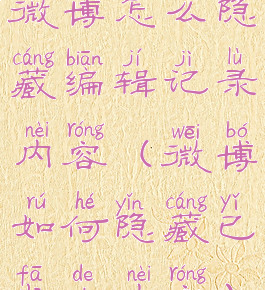 微博怎么隐
cáng biān jí jì lù
藏编辑记录
nèi róng wēi bó
内容（微博
rú hé yǐn cáng yǐ
如何隐藏已
fā de nèi róng